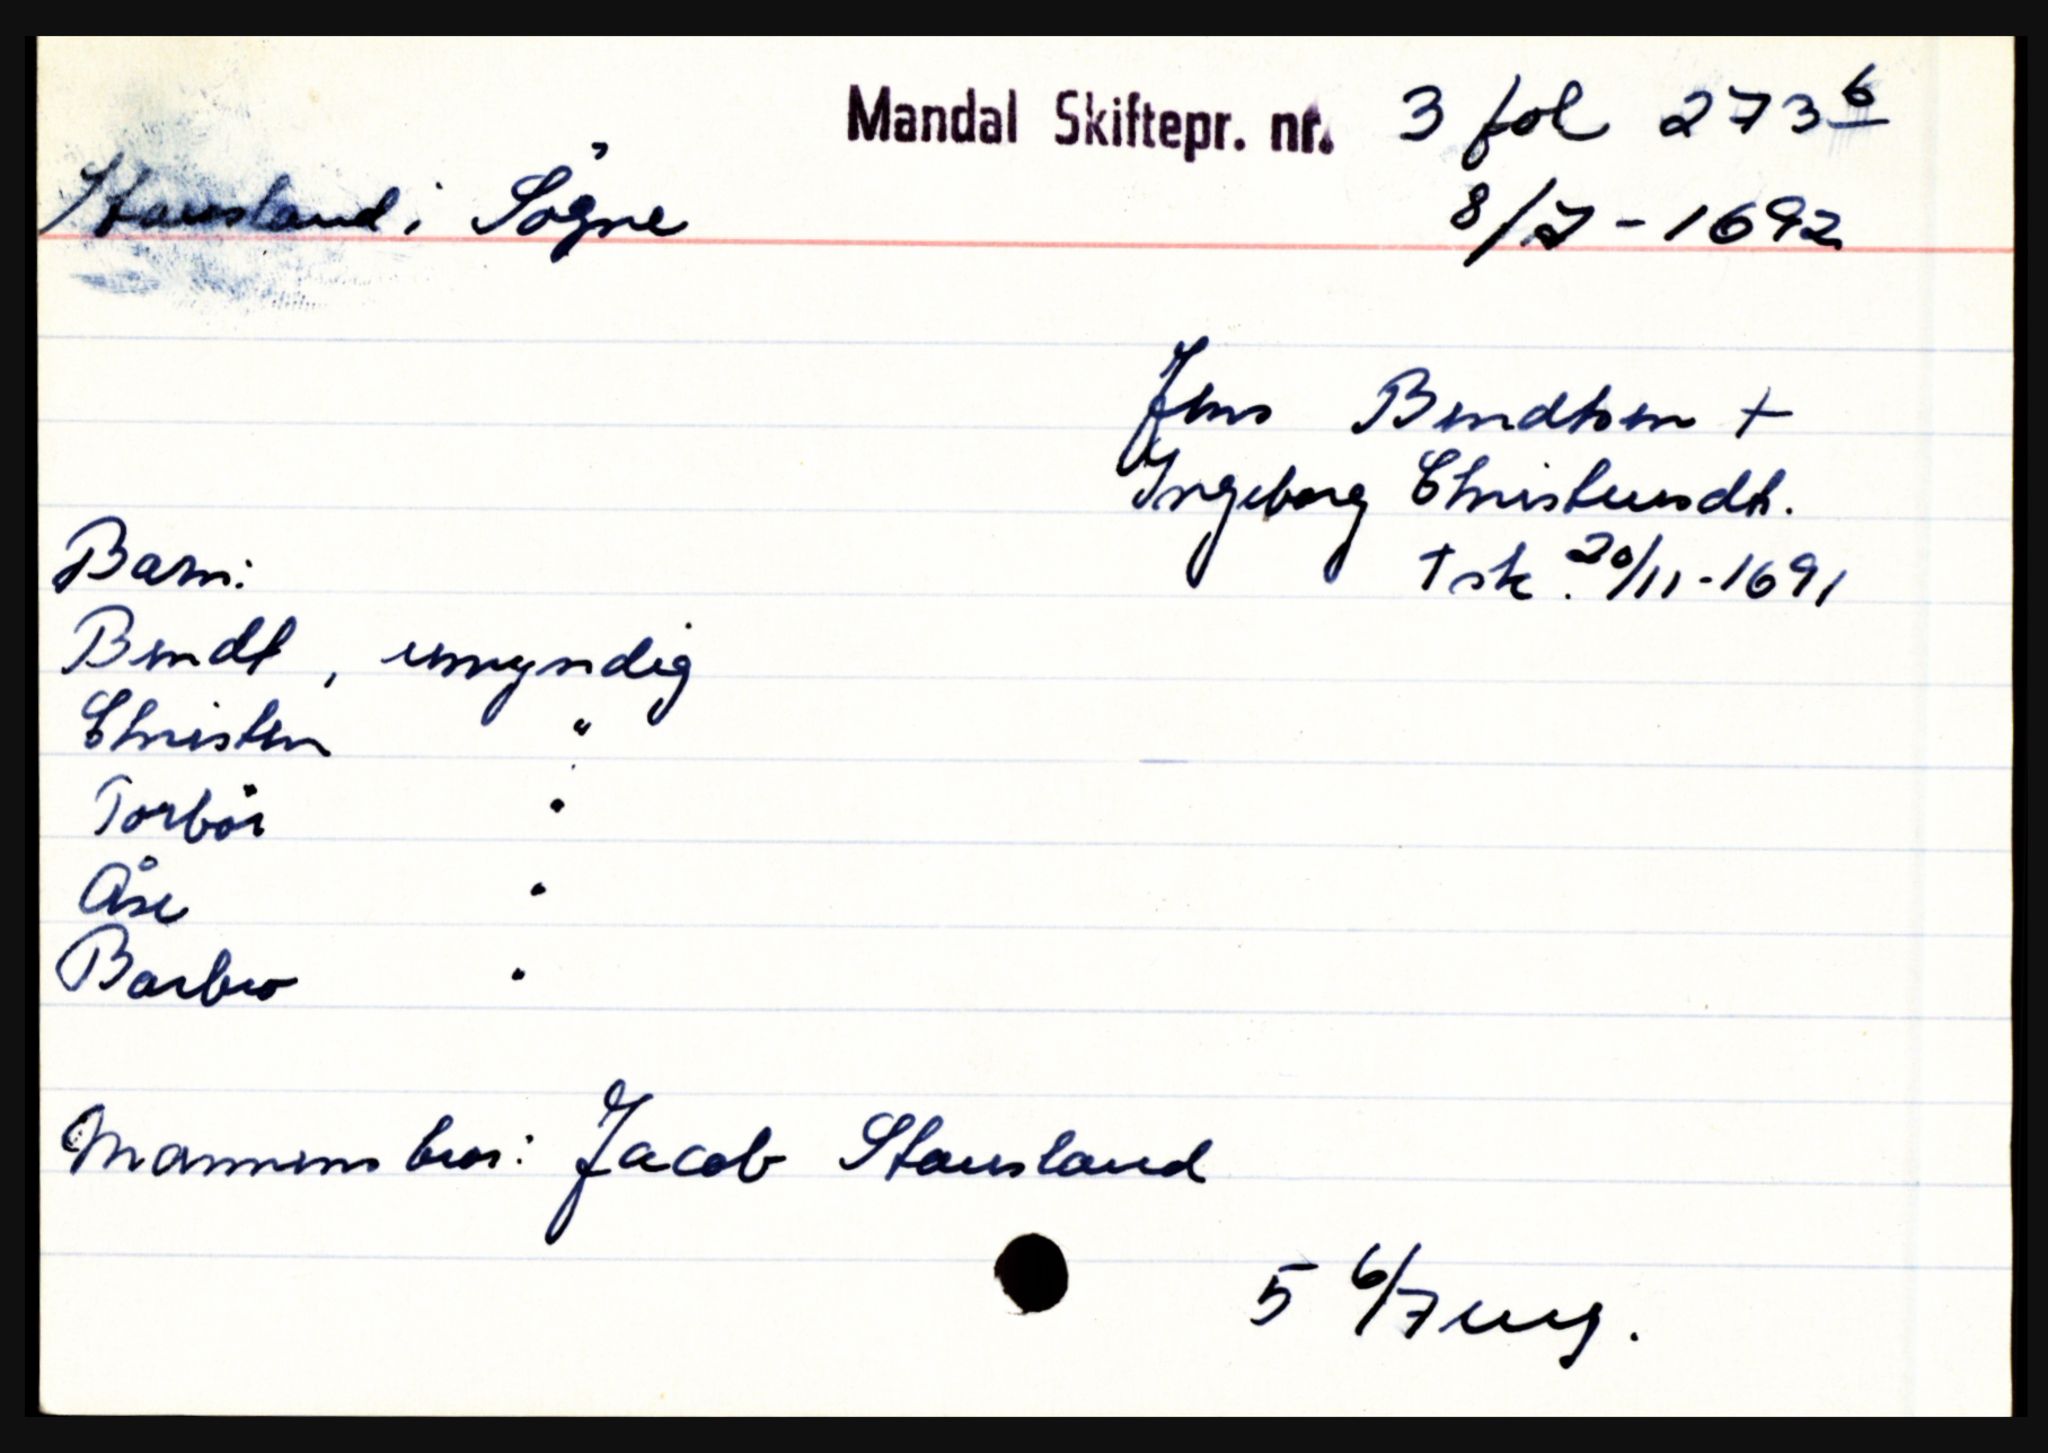 Mandal Skiftepr. nr. 3 fol 273 b
Stausland i Søgne 8/7 - 1692
Jens Bendtsen +
Ingeborg Christensdt.
† sk. 20/11 - 1691
Barn:
Bendt, umyndig
Christen "
Torbør "
Åse "
Barbro "
Mannens bror: Jacob Stausland
5 6/7 ung.